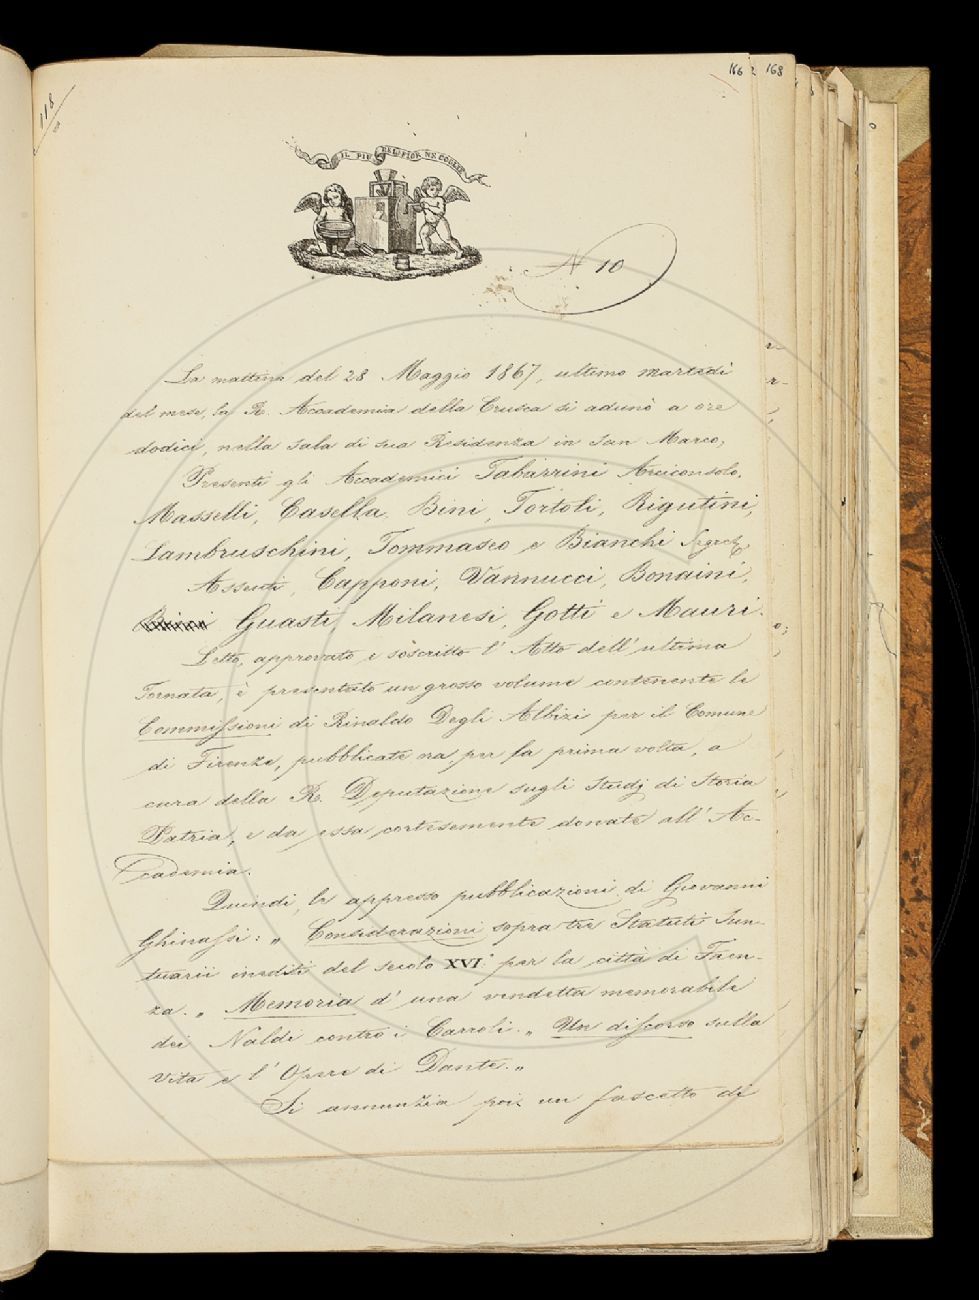 118
166 2 168
IL PIÙ BEL FIOR NE COGLIE
N 10
La mattina del 28 Maggio 1867, ultimo martedì
del mese, la R. Accademia della Crusca si adunò a ore
dodici, nella sala di sua Residenza in San Marco;
Presenti gli Accademici Tabarrini Arciconsolo,
Masselli, Casella, Bini, Tortoli, Rigutini,
Lambruschini, Tommaseo e Bianchi Segret.
Assenti, Capponi, Vannucci, Bonaini,
Guasti, Milanesi, Gotti e Mauri.
Letto, approvato e soscritto l' Atto dell' ultima
Tornata, è presentato un grosso volume contenente le
Commissioni di Rinaldo Degli Albizi per il Comune
di Firenze, pubblicate ora per la prima volta, a
cura della R. Deputazione sugli Studj di Storia
Patria, e da essa cortesemente donate all' Ac-
cademia.
Quindi, le appresso pubblicazioni di Giovanni
Ghinassi: „ Considerazioni sopra tre Statuti Sun-
tuarii inediti del secolo XVI.° per la città di Faen-
za. „ Memoria d' una vendetta memorabile
dei Naldi contro i Carroli. „ Un discorso sulla
vita e l' Opere di Dante. „
Si annunzia poi un fascetto di